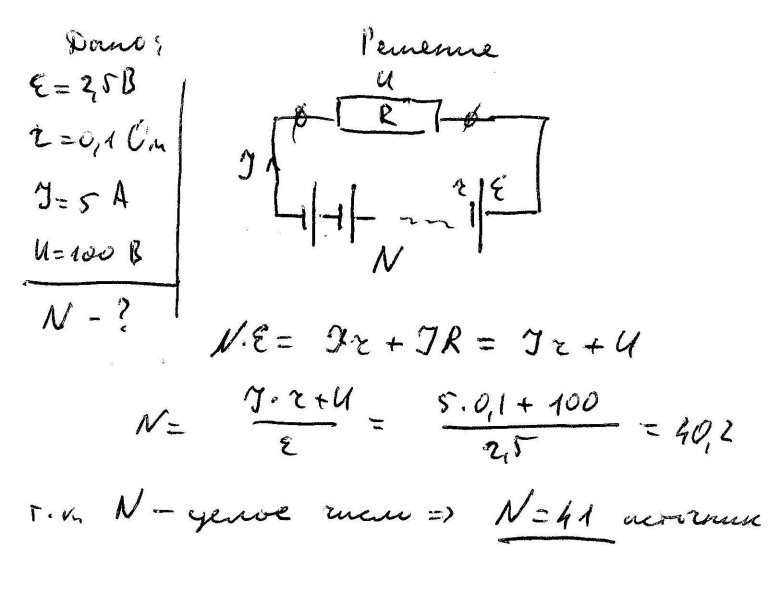 Дано:
ε = 2,5 В
r = 0,1 Ом
I = 5 А
U = 100 В
N - ?
Решение
U
R
I
r ε
N
N·ε = Ir + IR = Ir + U
N = (I·r + U) / ε = (5·0,1 + 100) / 2,5 = 40,2
т.к. N - целое число => N = 41 источник